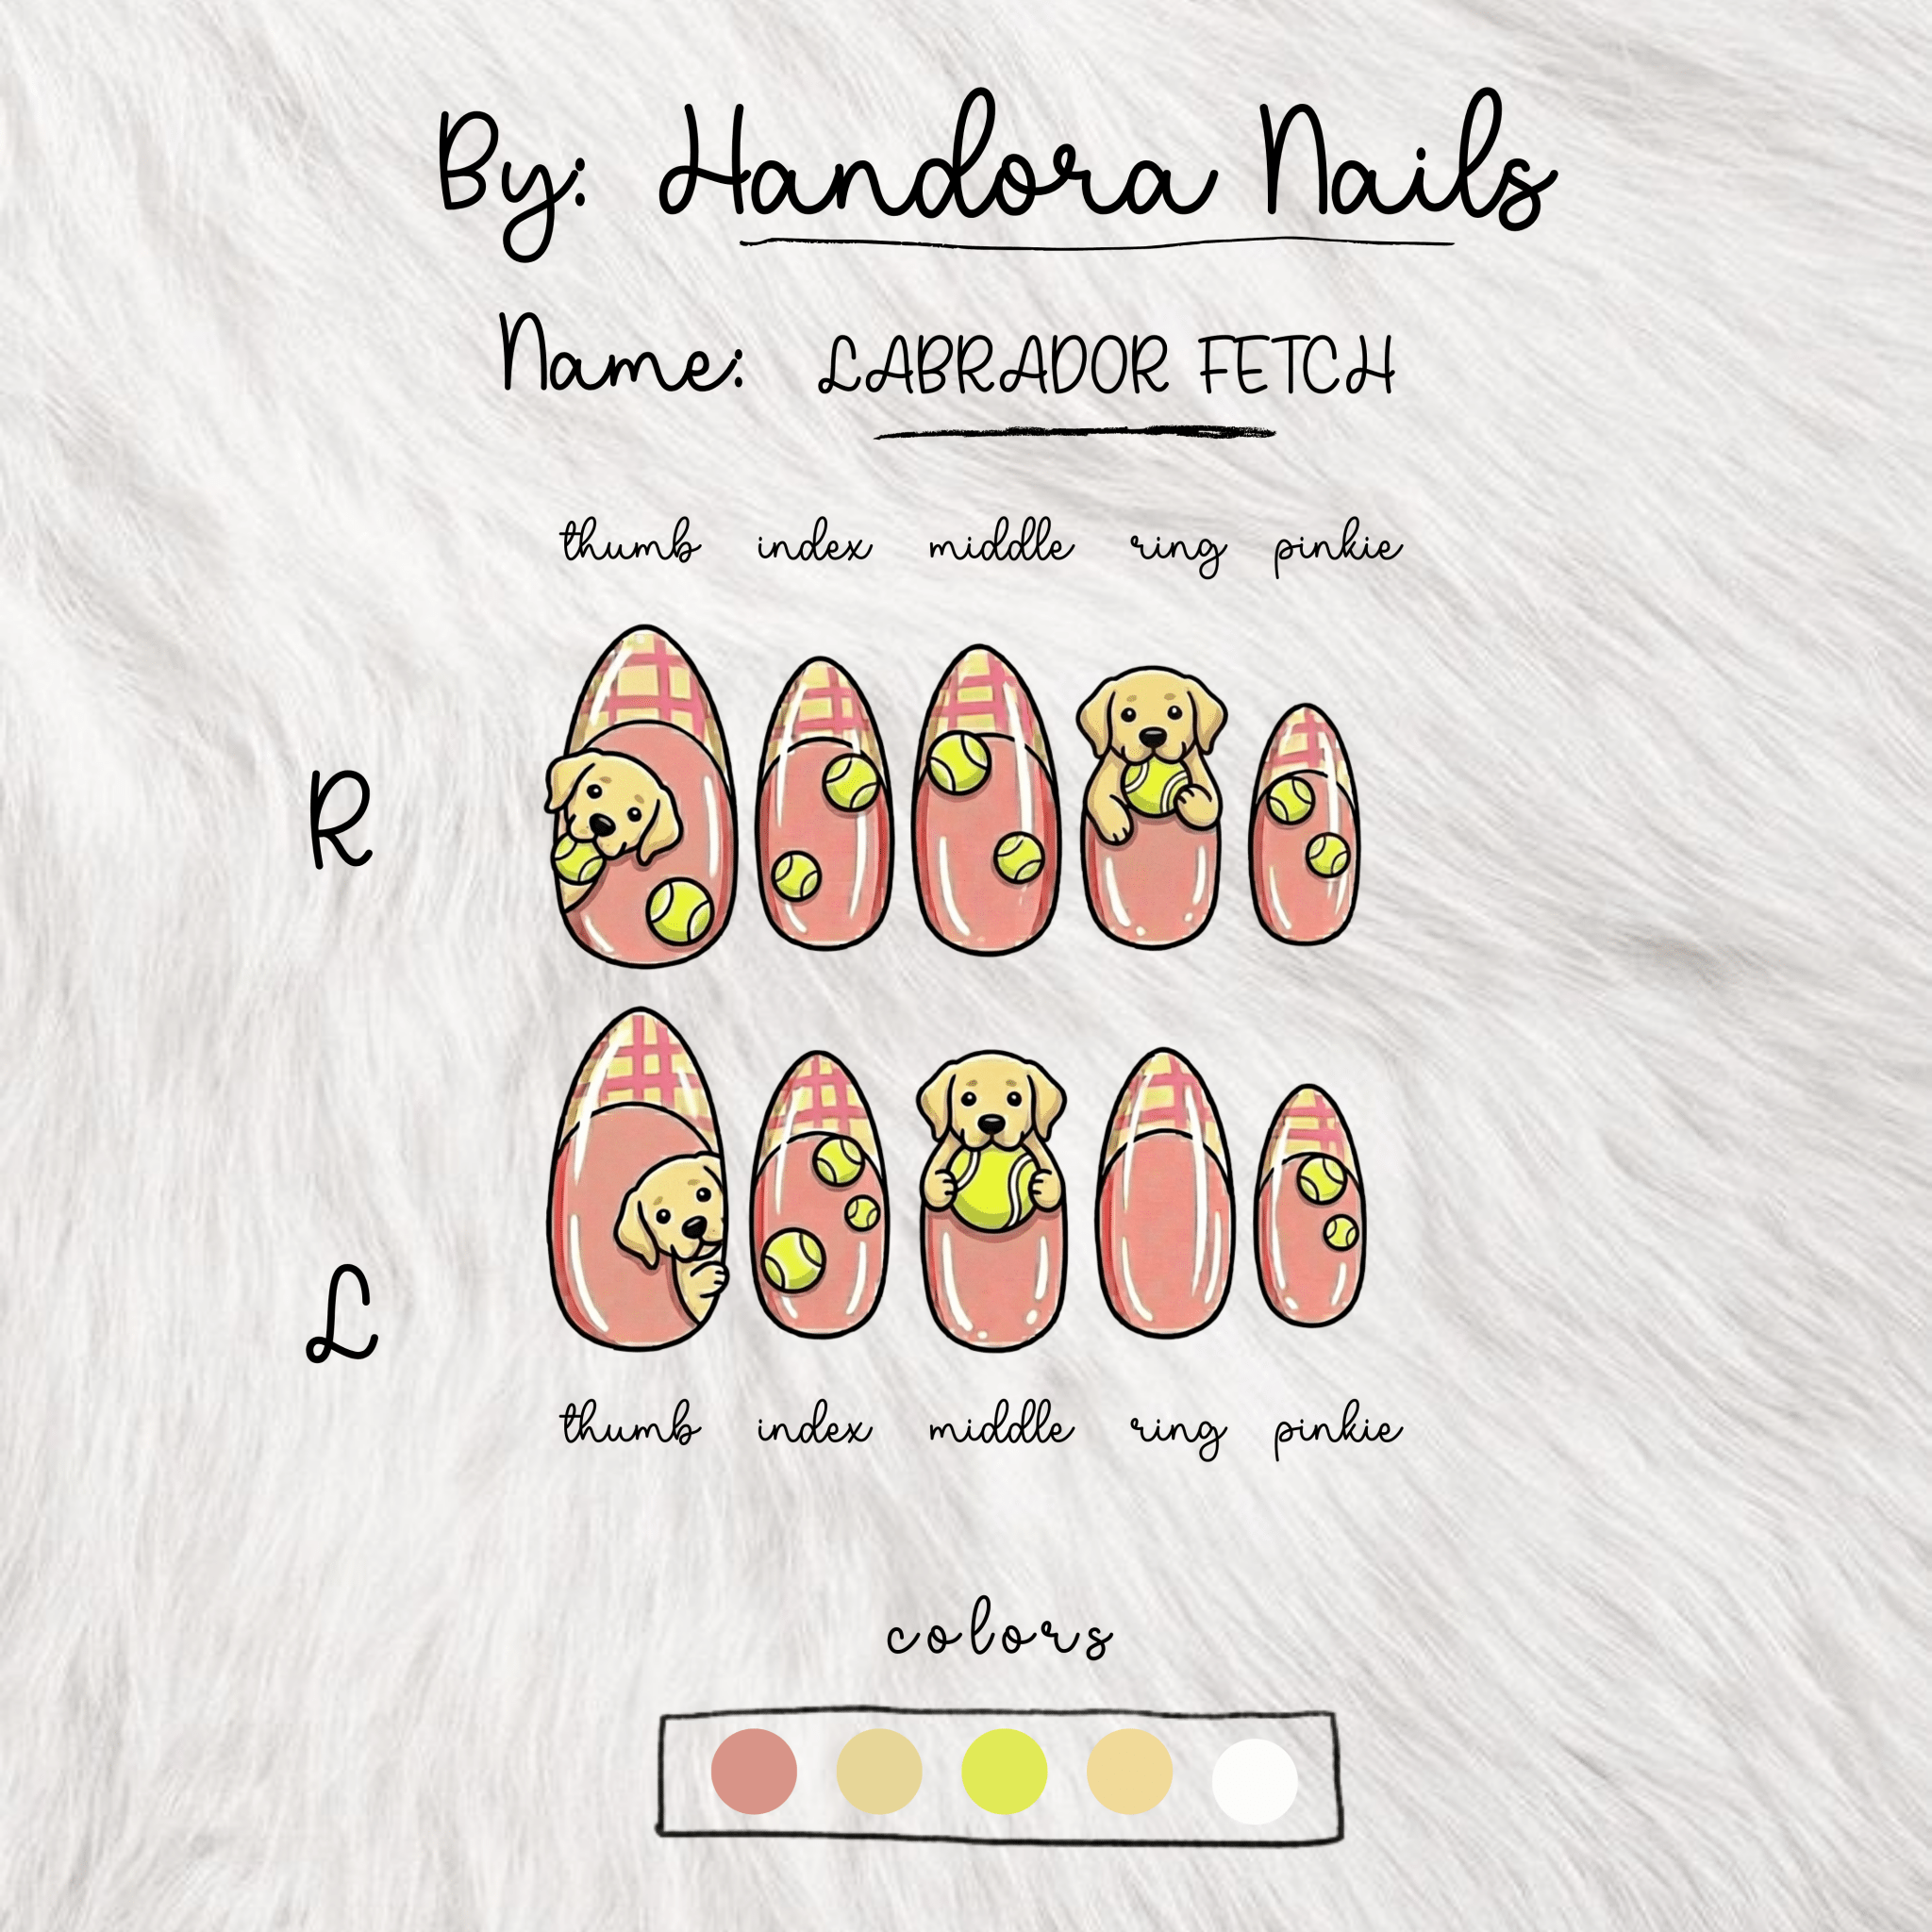 By: Handora Nails
Name: LABRADOR FETCH
thumb index middle ring pinkie
R
L
thumb index middle ring pinkie
colors